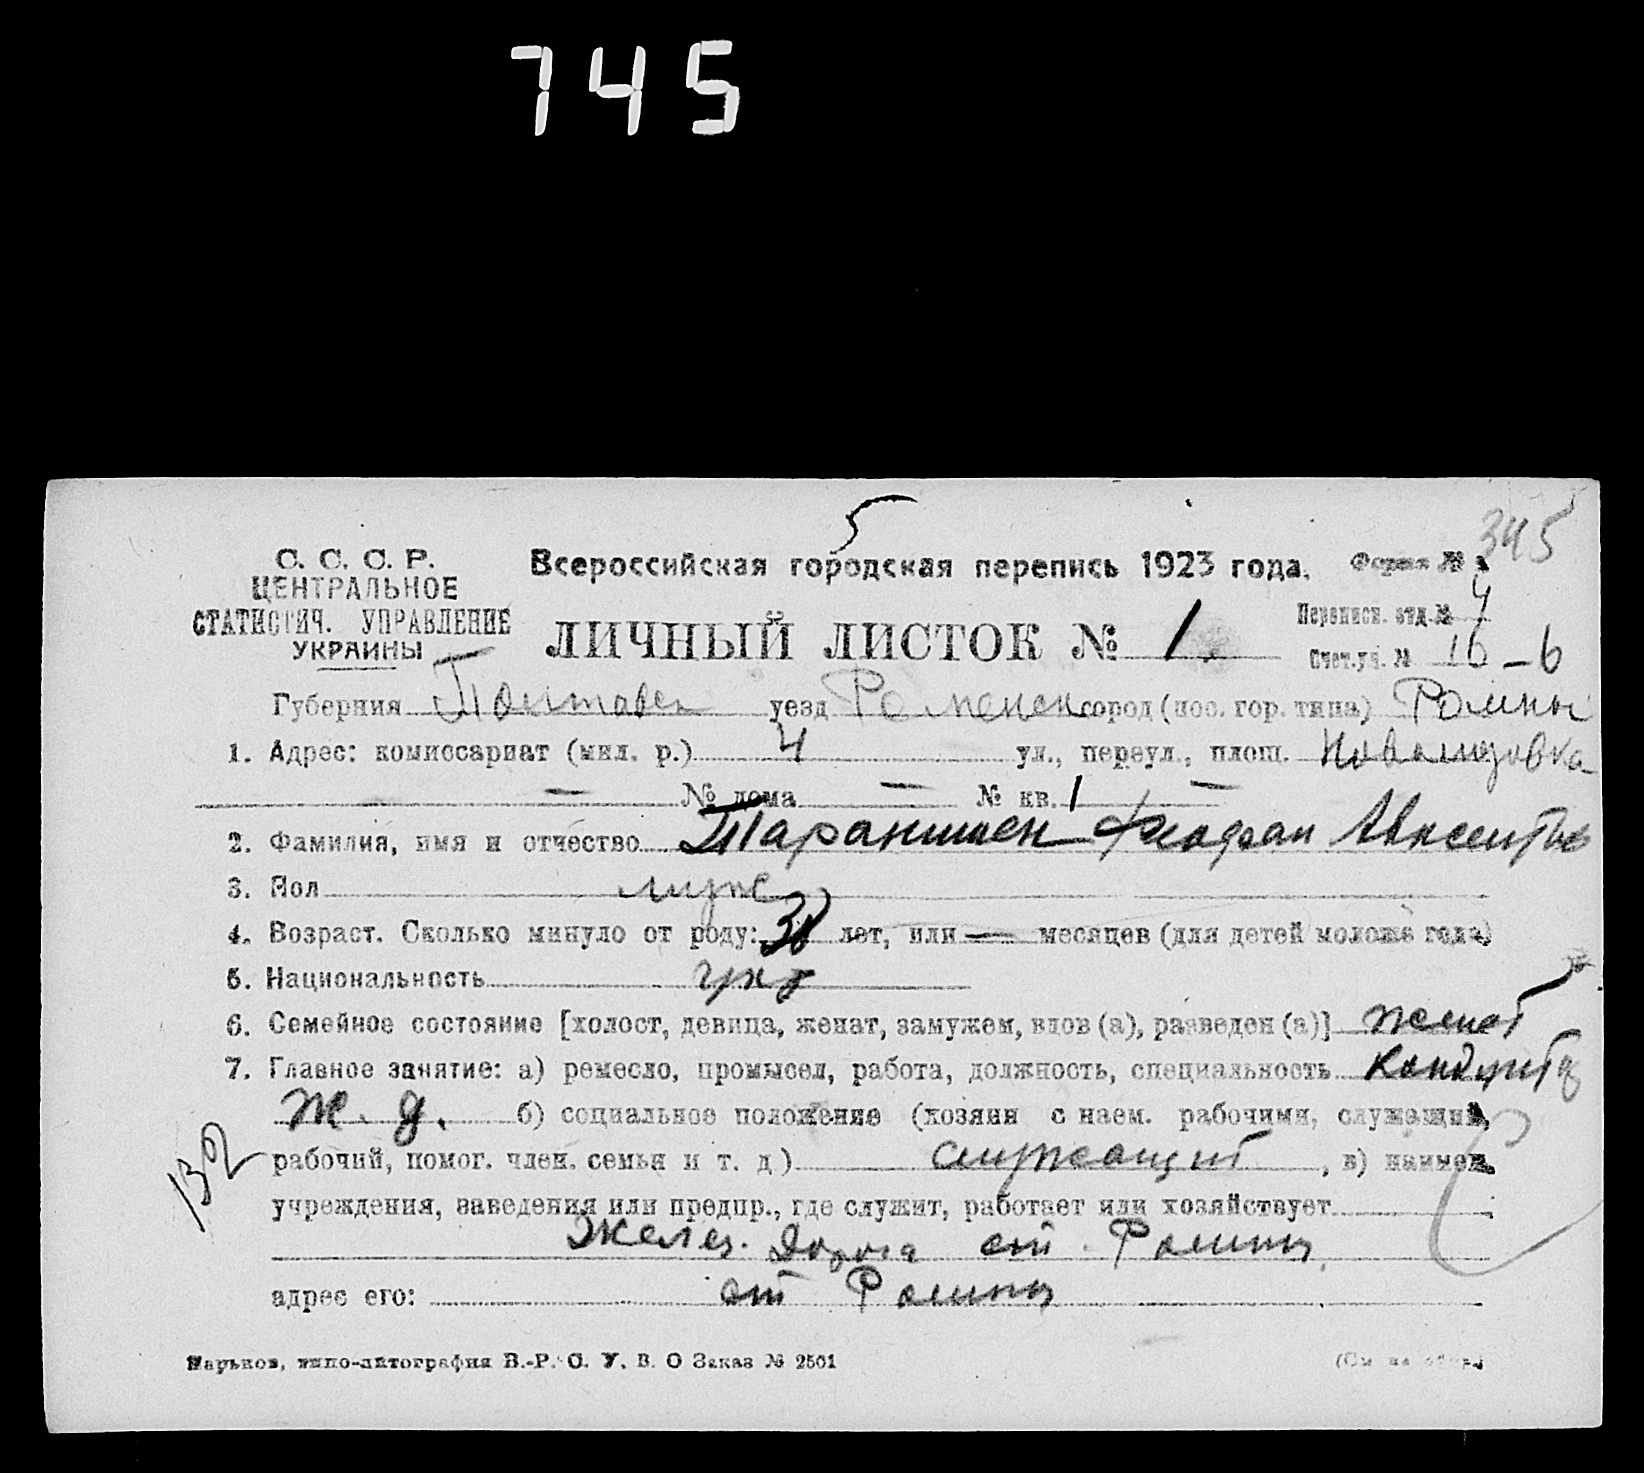 745
5
345
С. С. С. Р.
ЦЕНТРАЛЬНОЕ
СТАТИСТИЧ. УПРАВЛЕНИЕ
УКРАИНЫ
Всероссийская городская перепись 1923 года.
Форма №
ЛИЧНЫЙ ЛИСТОК № 1
Переписн. отд. № 4
Счет. уч. № 16 - 6
Губерния Полтавск уезд Роменск город (пос. гор. типа) Ромны
1. Адрес: комиссариат (мил. р.) 4 ул., переул., площ.
— № дома — № кв. 1 —
2. Фамилия, имя и отчество
3. Пол муж
4. Возраст. Сколько минуло от роду: лет, или — месяцев (для детей моложе года)
5. Национальность укр
6. Семейное состояние [холост, девица, женат, замужем, вдов (а), разведен (а)] женат
7. Главное занятие: а) ремесло, промысел, работа, должность, специальность кондукто
ж. д. б) социальное положение (хозяин с наем. рабочими, служащий,
132
рабочий, помог. член. семьи и т. д) служащий, в) наимен.
учреждения, заведения или предпр., где служит, работает или хозяйствует
Желез. дорога ст. Ромны
адрес его: ст Ромны
Харьков, типо-литография В.-Р. С. У. В. О Заказ № 2501
(См на обор.)